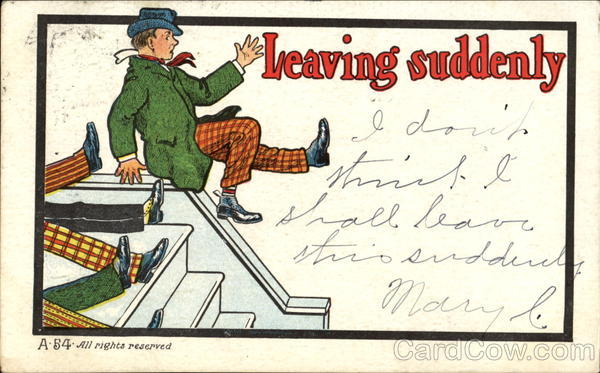 Leaving suddenly
I don't
think I
shall leave
this suddenly
Mary C.
A-54- All rights reserved
CardCow.com